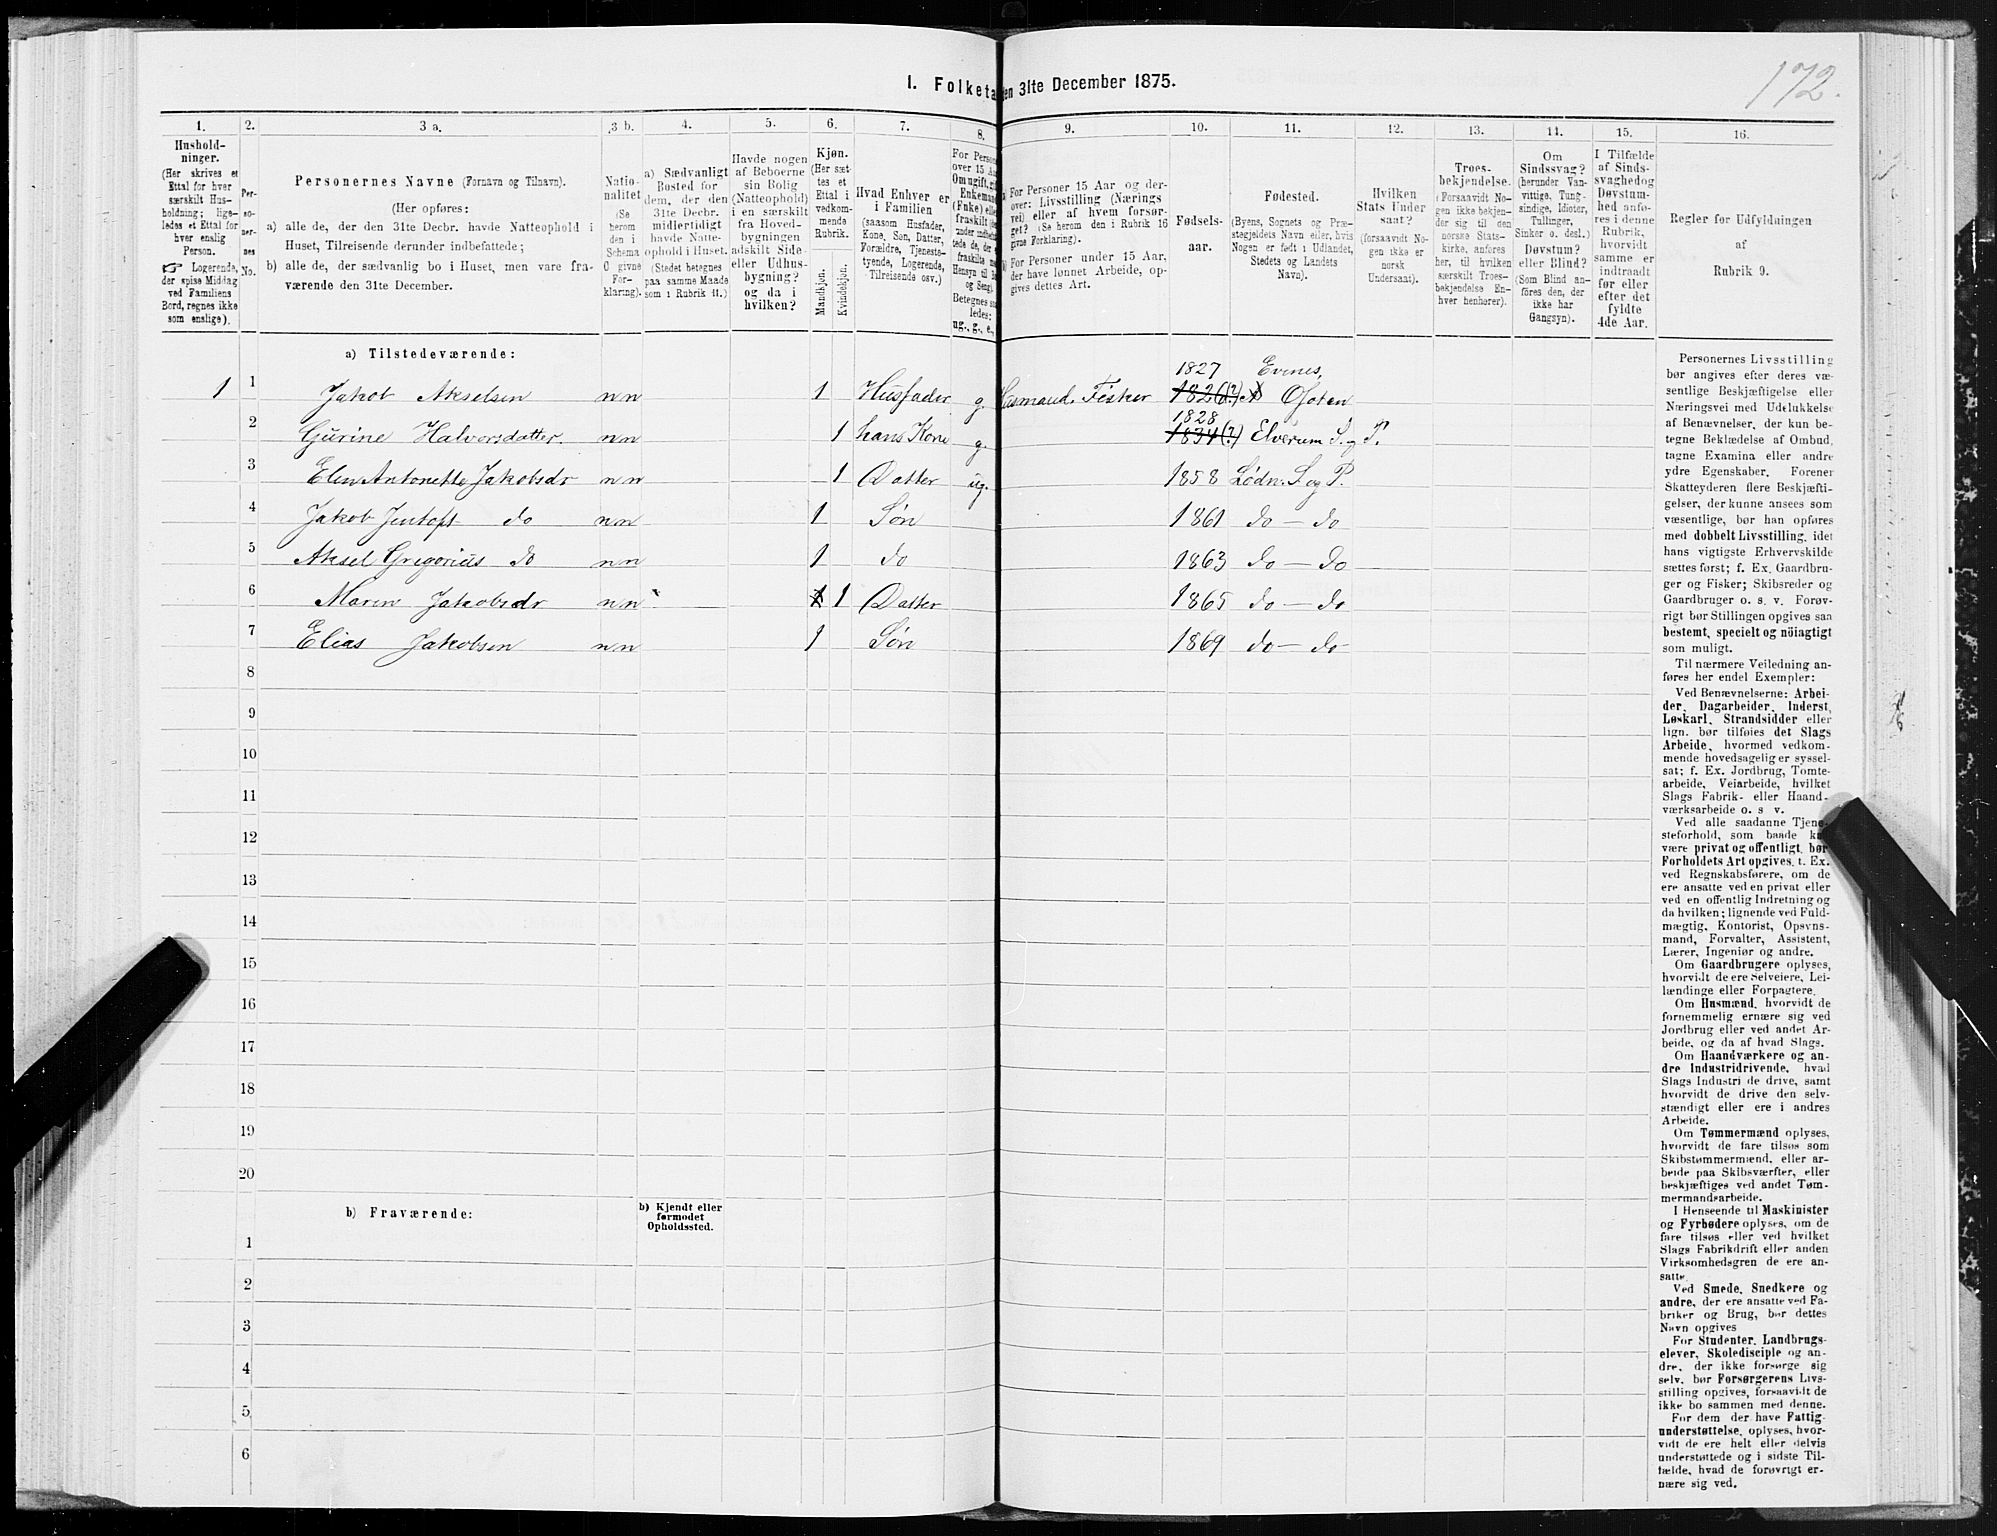 172.
1. Folketa
en 31te December 1875.
1. 2. 3 a. 3 b. 4. 5. 6. 7. 8. 9. 10. 11. 12. 13. 14. 15. 16.
Hushold-
ninger.
(Her skrives et
Ettal for hver
særskilt Hus-
holdning; lige-
ledes et Ettal for
hver enslig
Person.
☞ Logerende,
der spise Middag
ved Familiens
Bord, regnes ikke
som enslige).
Per-
so-
ner-
nes
No.
Personernes Navne (Fornavn og Tilnavn).
(Her opføres:
a) alle de, der den 31te Decbr. havde Natteophold i
Huset, Tilreisende derunder indbefattede;
b) alle de, der sædvanlig bo i Huset, men vare fra-
værende den 31te December.
Natio-
nalitet
(Se
herom
den i
Schema
O givne
For-
klaring).
a) Sædvanligt
Bosted for
dem, der den
31te Decbr.
midlertidigt
havde Natte-
ophold i Huset.
(Stedet betegnes
paa samme Maade
som i Rubrik 11.)
Havde nogen
af Beboerne
sin Bolig
(Natteophold)
i en særskilt
fra Hoved-
bygningen
adskilt Side-
eller Udhus-
bygning?
og da i
hvilken?
Kjøn.
(Her sæt-
tes et
Ettal i
vedkom-
mende
Rubrik.
Mandkjøn.
Kvindekjøn.
Hvad Enhver er
i Familien
(saasom Husfader,
Kone, Søn, Datter,
Forældre, Tjeneste-
tyende, Logerende,
Tilreisende osv.)
For Person
over 15 Aar
Om ugift, gif
Enkeman
(Fnke) elle
fraskilt
Betegnes saa
ledes:
ug., g., e.,
a) For Personer 15 Aar og der-
over: Livsstilling (Nærings
vei) eller af hvem forsør-
get? (Se herom den i Rubrik 16
givne Forklaring).
b) For Personer under 15 Aar,
der have lønnet Arbeide, op-
gives dettes Art.
Fødsels-
aar.
Fødested.
(Byens, Sognets og Præ-
stegjeldets Navn eller, hvis
Nogen er født i Udlandet,
Stedets og Landets
Navn).
Hvilken
Stats Under
saat?
(forsaavidt No-
gen ikke er
norsk
Undersaat).
Troes-
bekjendelse.
(Forsaavidt No-
gen ikke bekjen-
der sig til den
norske Stats-
kirke, anføres
her, til hvilken
særskilt Troes-
bekjendelse En-
hver henhører).
Om
Sindssvag?
(herunder Van-
vittige, Tung-
sindige, Idioter,
Tullinger,
Sinker o. desl.)
Døvstum?
eller Blind?
(Som Blind an-
føres den, der
ikke har
Gangsyn).
I Tilfælde
af Sinds-
svaghed og
Døvstum-
hed anfø-
res i denne
Rubrik,
hvorvidt
samme er
indtraadt
før eller
efter det
fyldte
4de Aar.
Regler for Udfyldningen
af
Rubrik 9.
a) Tilstedeværende:
1827 Evenes,
1 1 Jakob Akselsen nn 1 Husfader g Husmand, Fisker 1826(?) Ofoten
1828
2 Gurine Halvorsdatter. nn 1 hans Kone g. 1834(?) Elverum S. og P.
3 Elen Antonette Jakobsdr nn 1 Datter ug. 1858 Lødn. S. og P.
4 Jakob Jentoft do nn 1 Søn 1861 do – do
5 Aksel Gregorius do nn 1 do 1863 do – do
6 Maren Jakobsdr nn 1 1 Datter 1865 do – do
7 Elias Jakobsen nn 1 Søn 1869 do – do
8
9
10
11
12
13
14
15
16
17
18
19
20
b) Fraværende:
b) Kjendt eller
formodet
Opholdssted.
1
2
3
4
5
6
Personernes Livsstilling
bør angives efter deres væ-
sentlige Beskjæftigelse eller
Næringsvei med Udelukkelse
af Benævnelser, der kun be-
tegne Beklædelse af Ombud,
tagne Examina eller andre
ydre Egenskaber. Forener
Skatteyderen flere Beskjæfti-
gelser, der kunne ansees som
væsentlige, bør han opføres
med dobbelt Livsstilling, idet
hans vigtigste Erhvervskilde
sættes først; f. Ex. Gaardbru-
ger og Fisker; Skibsreder og
Gaardbruger o. s. v. Forøv-
rigt bør Stillingen opgives saa
bestemt, specielt og nöiagtigt
som muligt.
Til nærmere Veiledning an-
føres her endel Exempler:
Ved Benævnelserne: Arbei-
der, Dagarbeider, Inderst,
Løskarl, Strandsidder eller
lign. bør tilføies det Slags
Arbeide, hvormed vedkom-
mende hovedsagelig er syssel-
sat; f. Ex. Jordbrug, Tomte-
arbeide, Veiarbeide, hvilket
Slags Fabrik- eller Haand-
værksarbeide o. s v.
Ved alle saadanne Tjene-
steforhold, som baade kan
være privat og offentligt, bør
Forholdets Art opgives, t. Ex.
ved Regnskabsførere, om de
ere ansatte ved en privat eller
ved en offentlig Indretning og
da hvilken; lignende ved Fuld-
mægtig, Kontorist, Opsyns-
mand, Forvalter, Assistent,
Lærer, Ingeniør og andre.
Om Gaardbrugere oplyses,
hvorvidt de ere Selveiere, Lei-
lændinge eller Forpagtere.
Om Husmænd, hvorvidt de
fornemmelig ernære sig ved
Jordbrug eller ved andet Ar-
beide, og da af hvad Slags.
Om Haandværkere og an-
dre Industridrivende, hvad
Slags Industri de drive, samt
hvorvidt de drive den selv-
stændigt eller ere i andres
Arbeide.
Om Tømmermænd oplyses,
hvorvidt de fare tilsøs som
Skibstømmermænd, eller ar-
beide paa Skibsværfter, eller
beskjæftiges ved andet Tøm-
mermandsarbeide.
I Henseende til Maskinister
og Fyrbødere oplyses, om de
fare tilsøs eller ved hvilket
Slags Fabrikdrift eller anden
Virksomhedsgren de ere an-
satte.
Ved Smede, Snedkere og
andre, der ere ansatte ved Fa-
briker og Brug, bør dettes
Navn opgives
For Studenter, Landbrugs-
elever, Skoledisciple og an-
dre, der ikke forsørge sig
selv, bør Forsørgerens Livs-
stilling opgives, forsaavidt de
ikke bo sammen med denne.
For dem der have Fattig-
understøttelse, oplyses, hvor-
vidt de ere helt eller delvis
understøttede og i sidste Til-
fælde, hvad de forøvrigt er-
nære sig ved.